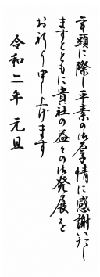 年頭に際し平素の御厚情に感謝いたし
ますとともに貴社の益々の御発展を
お祈り申し上げます
令和二年 元旦